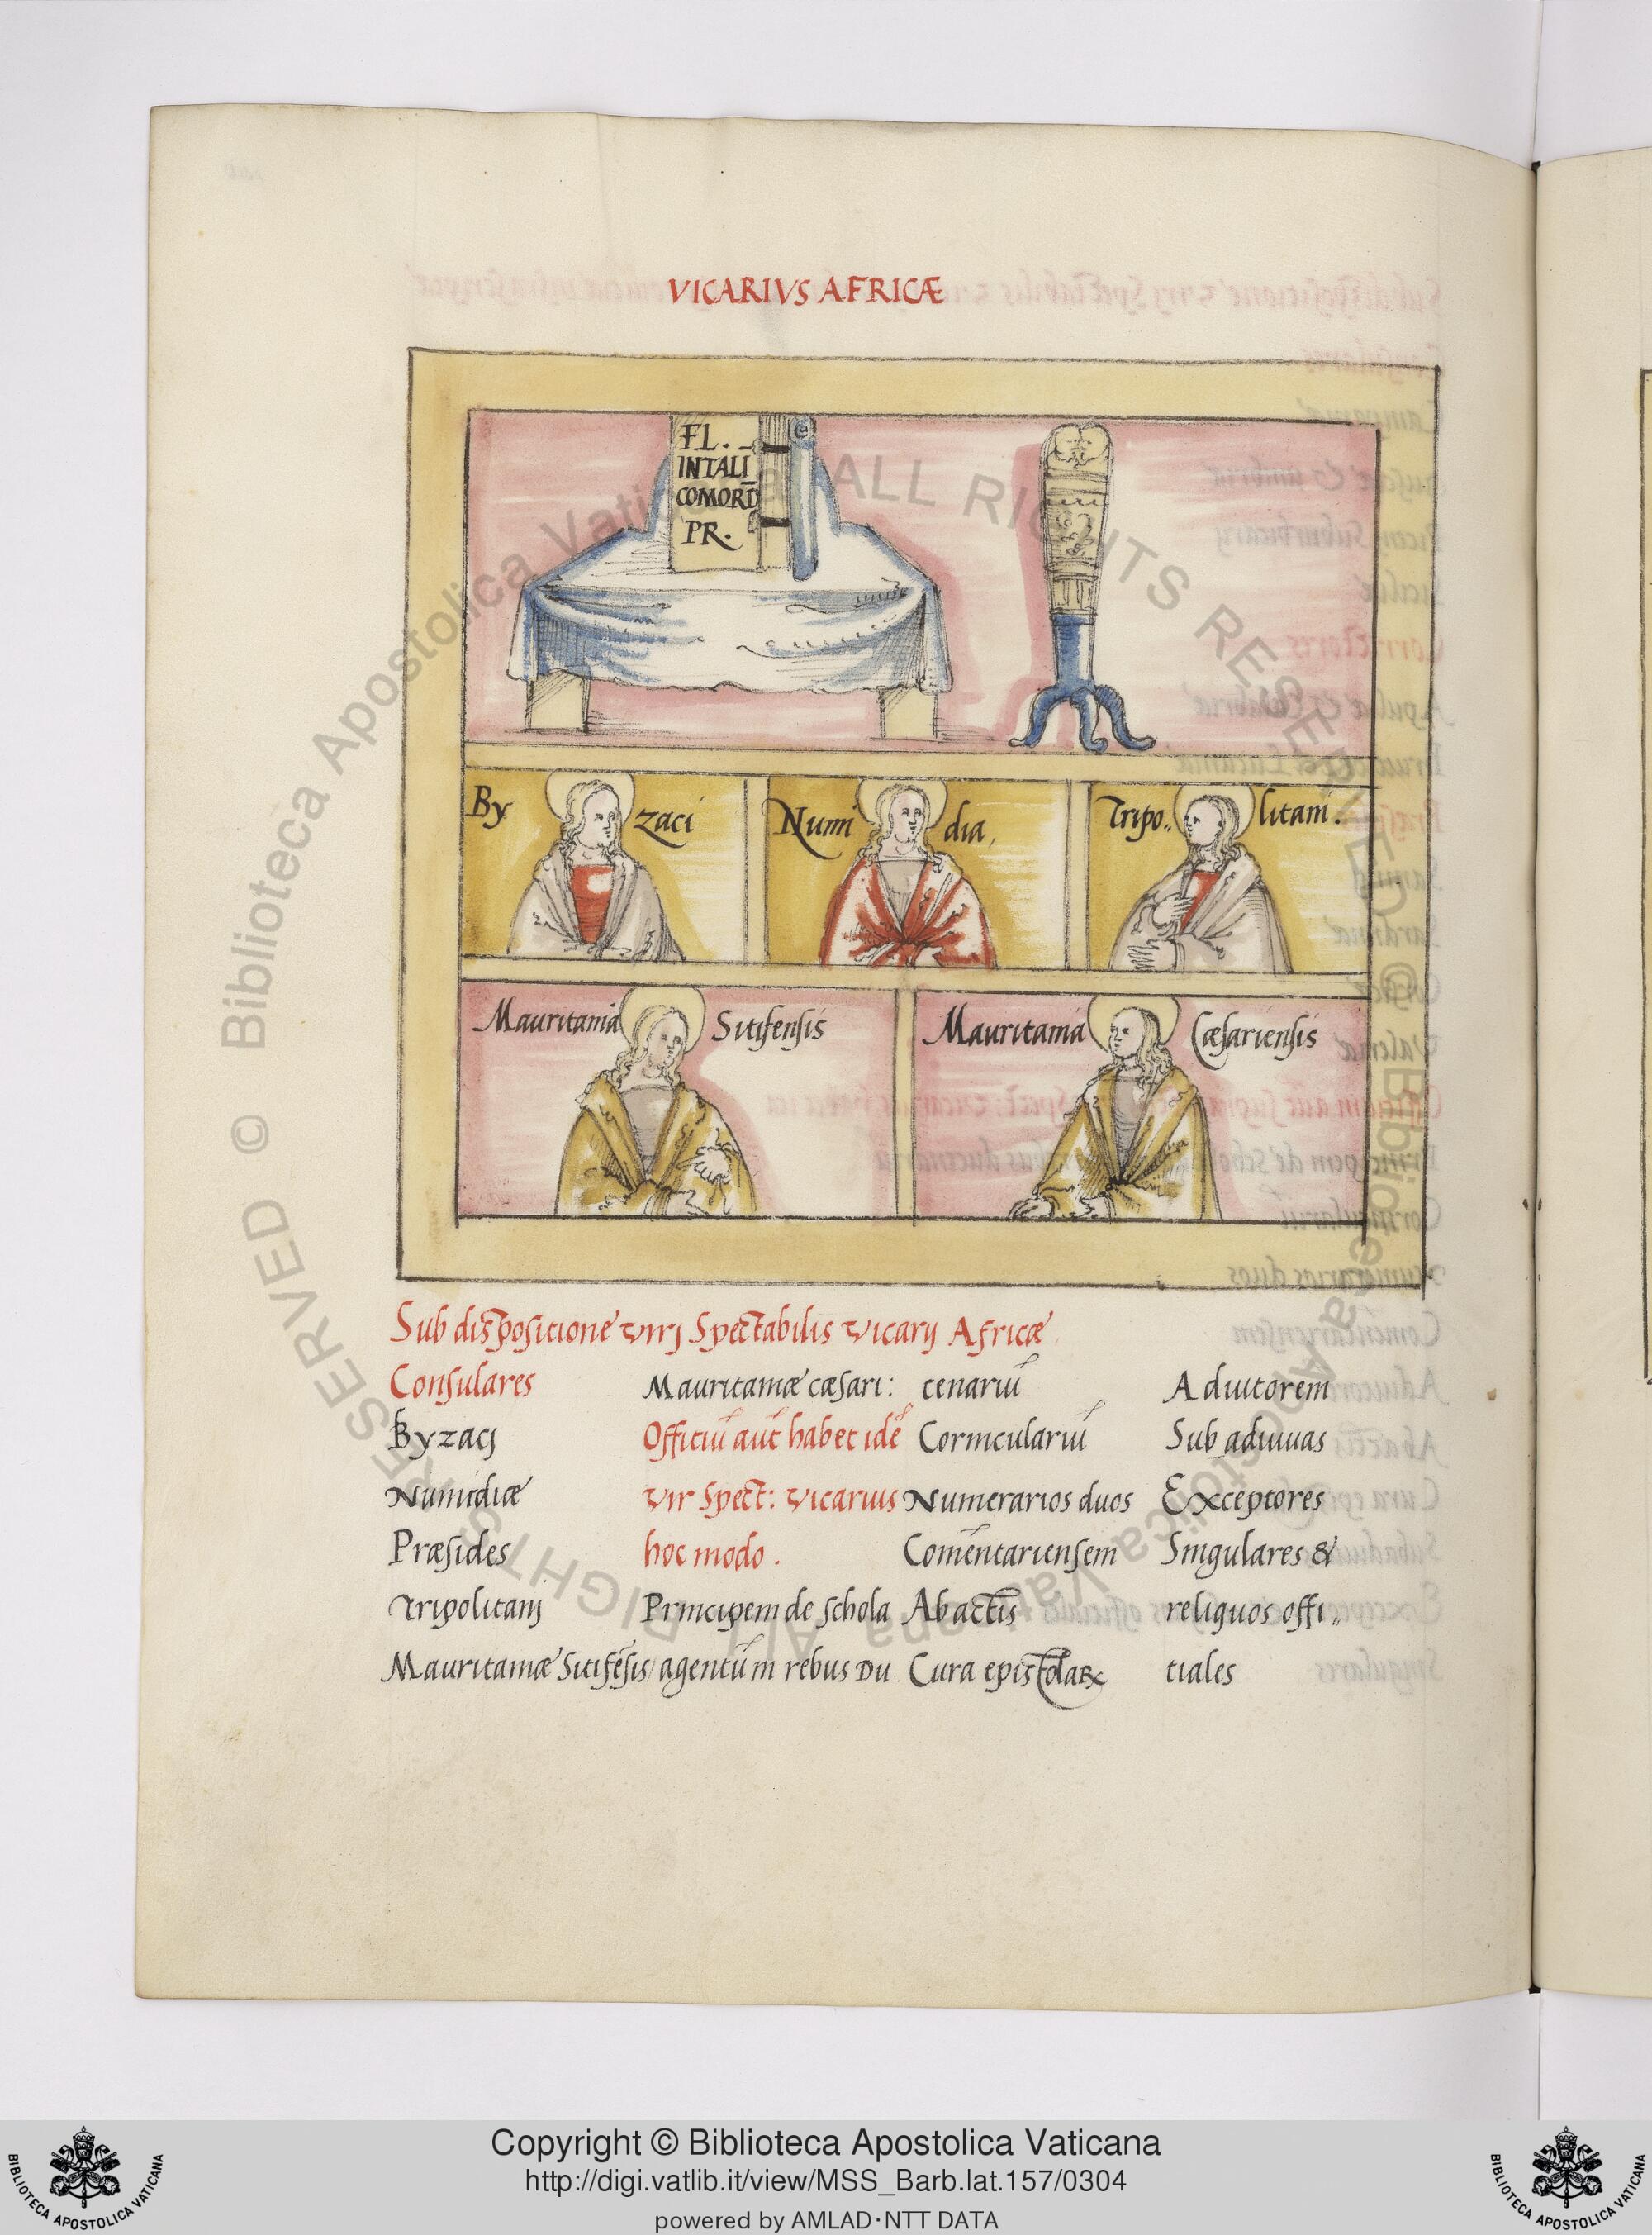 VICARIVS AFRICÆ
FL.
INTALI
COMORD̄
PR.
By zaci
Numi dia,
Tripo„ litam.
Mauritania Sitifensis
Mauritania Cæsariensis
Sub dispositione virj Spectabilis vicarij Africæ
Consulares
Byzacj
Numidiæ
Præsides
Tripolitanj
Mauritaniæ Sitifēsis
Mauritaniæ cæsari:
Officiū aūt habet idē
vir spect: vicarius
hoc modo.
Principem de schola
agentūm rebus Du
cenariū
Corniculariū
Numerarios duos
Com̄entariensem
Ab actis
Cura epistolaꝝ
Adiutorem
Sub adiuuas
Exceptores
Singulares &
reliquos offi„
tiales
© Biblioteca Apostolica Vaticana ALL RIGHTS RESERVED © Biblioteca Apostolica Vaticana ALL RIGHTS RESERVED
BIBLIOTECA APOSTOLICA VATICANA
Copyright © Biblioteca Apostolica Vaticana
http://digi.vatlib.it/view/MSS_Barb.lat.157/0304
powered by AMLAD·NTT DATA
BIBLIOTECA APOSTOLICA VATICANA